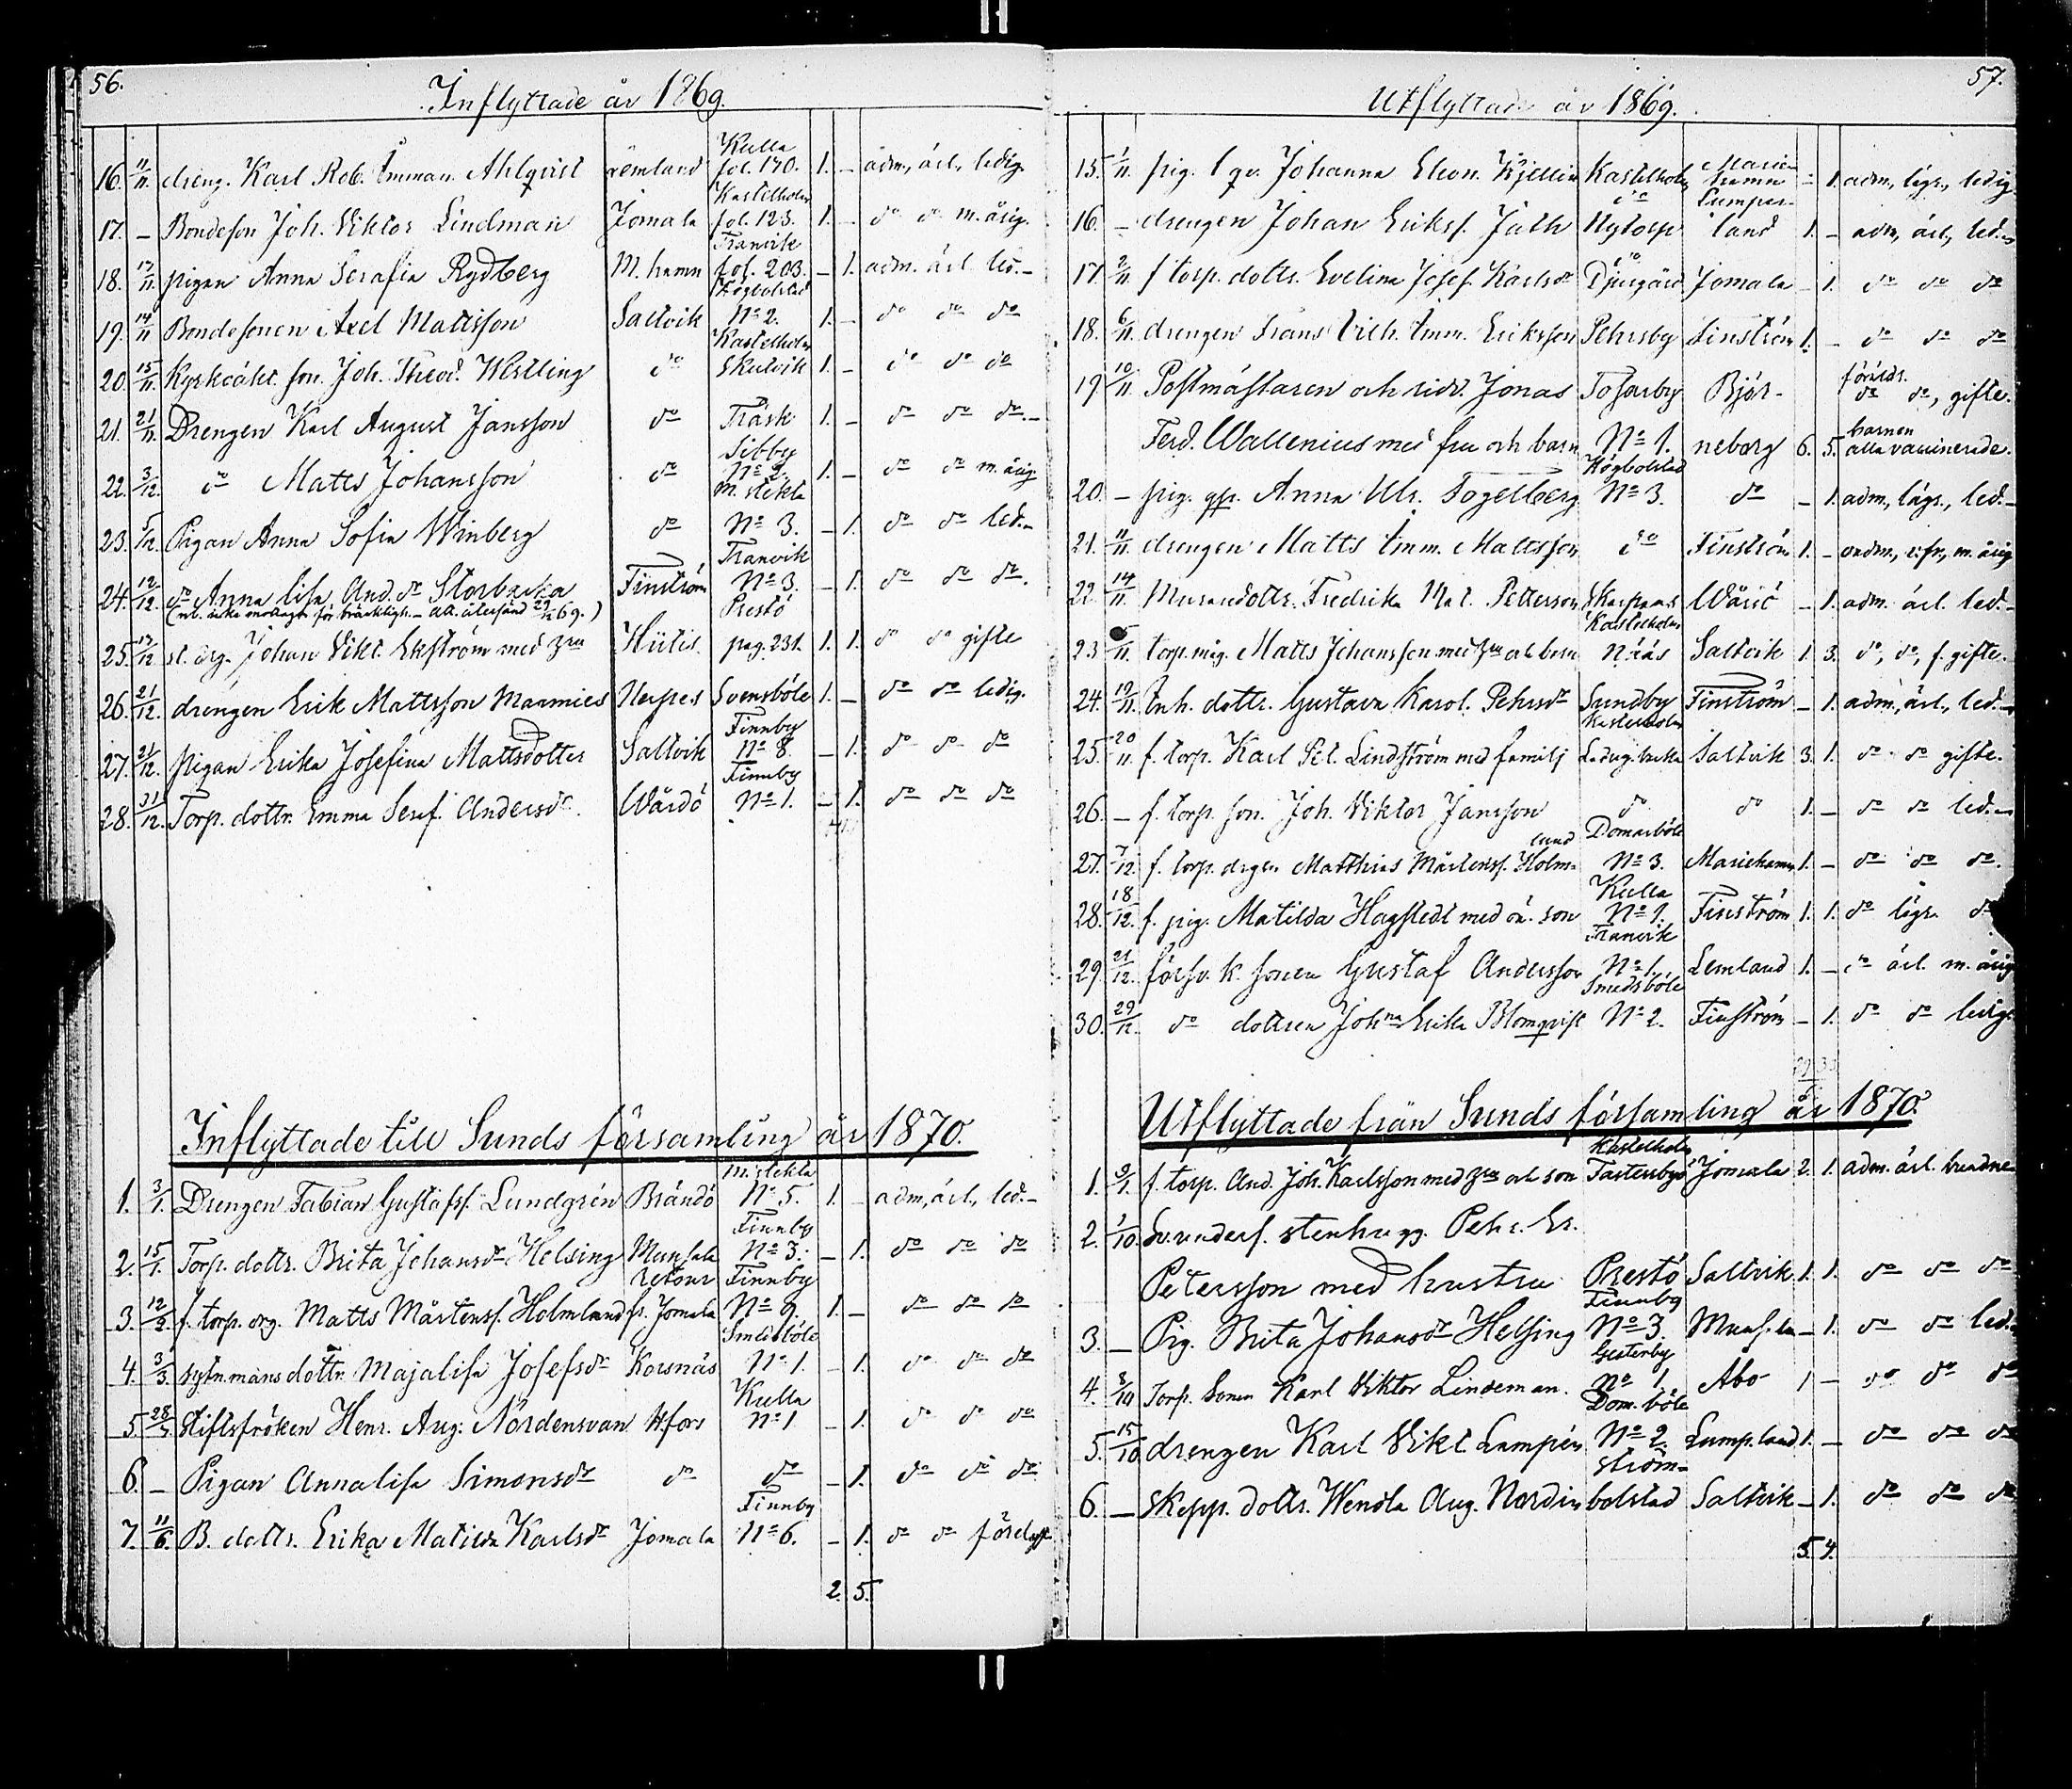 56.
Inflyttade år 1869.
16. 11/11. dreng. Karl Rob. Imman. Ahlqvist Lemland Kulla fol. 170. 1. – adm., ärl., ledig.
17. – Bondeson Joh. Viktor Lindman Jomala Kastelholm fol. 123. 1. – do do m.årig.
18. 12/11. pigan Anna Serafia Rydberg M. hamn Tranvik fol. 203. – 1. adm. ärl. led. –
19. 14/11 Bondesonen Axel Mattsson Saltvik Högbolstad No 2. 1. – do do do
20. 15/11. Kyrkvákt. son. Joh. Theod. Westling do Kastelholm Skutvik 1. – do do do
21. 21/11. Drengen Karl August Jansson do Träsk 1. – do do do. –
22. 3/12. do Matts Johansson do Sibby No 2. 1. – do do m. årig
23. 5/12. Pigan Anna Sofia Winberg do M. stekta No 3. – 1. do do led. –
24. 12/12. do Anna Lisa And. dr Storbacka Finström Tranvik No 3. – 1. do do do.
25. 17/12 Johan Vikt. Ekström med Hru Hiitis Prestö pag. 231. 1. 1. do do gifte
26. 21/12. drengen Erik Mattsson Marmies Nerpes Svensböle 1. – do do ledig.
27. 21/12. pigan Erika Josefina Mattsdotter Saltvik Finnby No 8. – 1. do do do
28. 31/12. Torp. dottr. Emma Seraf. Andersdr. Wårdö Finnby No 1. – 1. do do do
Inflyttade till Sunds församling år 1870.
1. 3/1. Drengen Fabian Gustafss. Lundgrén Brändö M. stekta No 5. 1. – adm., ärl., led. –
2. 15/1. Torp. dottr. Brita Johansdr Helsing Munsala Finnby No 3. – 1. do do do
3. 12/2. f. torp. drg. Matts Mårtenss. Holmlund retour fr. Jomala Finnby No 9. 1. – do do do
4. 3/3. dottr. Majalisa Josefsdr Korsnäs Smedsböle No 1. – 1. do do do
5. 28/5 Stiftsfröken Henr. Aug. Nordensvan H:fors Kulla No 1 – 1. do do do
6. – Pigan Annalisa Simonsdr do do – 1. do do do
7. 11/6. B. dottr. Erika Matilda Karlsdr Jomala Finnby No 6. – 1. do do
2. 5.
57.
Utflyttade år 1869.
15. 1/11. pig. Johanna Eleon. Kjellin Kastelholm Mariehamn – 1. adm., lägr., ledig
16. – drengen Johan Erikss. Jath do Nytorp Lumperland 1. – adm., ärl., led. –
17. 2/11. f torp. dottr. Evelina Josef. Karlsdr do Djurgård Jomala – 1. do do do
18. 6/11. drengen Frans Vilh. Imm. Eriksson Pehrsby Finström 1. – do do do
19 10/11. Postmästaren och ridd. Jonas Tosarby Björ- föräldr. do do, gifte.
Ferd. Wallenius med fru och barn No 1. neborg 6. 5. barnen alla vaccinerade.
20. – pig. Anna Ulr. Fogelberg Högbolstad No 3. do – 1. adm., lägr., led. –
21. 11/11. drengen Matts Imm. Mattsson do Finström 1. – m. årig
22. 14/11. Muraredottr. Fredrika Mat. Petterson Skarpans Wårdö – 1. adm. ärl. led. –
23 15/11. torp. måg. Matts Johansson med Hru och barn Kastelholm Näs Saltvik 1. 3. do, do, f. gifte.
24. 19/11. Inh. dottr. Gustava Karol. Pehrsdr Sundby Finström – 1. adm., ärl., led. –
25. 20/11. f. torp. Karl Pet. Lindström med familj Kastelholm Saltvik 3. 1. do do gifte.
26. – f. torp. son. Joh. Viktor Jansson do do 1. – do do led. –
27. 7/12. f. torp. drgen Matthias Mårtenss. Holmlund Domarböle No 3. Mariehamn 1. – do do do.
28. 18/12. f. pig. Matilda Hagstedt med oä. son Kulla No 1. Finström 1. 1. do lägr. do
29. 21/12. försv. k. sonen Gustaf Andersson Tranvik No 1. Lemland 1. – do ärl. m. årig
30. 29/12. do dottren Johna Erika Blomqvist Smedsböle No 2. Finström – 1. do do ledig.
Utflyttade från Sunds församling år 1870.
1. 9/1. f. torp. And. Joh. Karlsson med Hru och son Kastelholm Jomala 2. 1. adm. ärl.
2. 1/10. stenhugg. Pehr Er.
Petersson med hustru Prestö Saltvik 1. 1. do do do
3. – Pig. Brita Johansdr Helsing Finnby No 3. Munsala – 1. do do led.
4. 8/10 Torp. Sonen Karl Viktor Lindeman. Gesterby No 1. Åbo 1 – do do do
5. 15/10 drengen Karl Vikt Lampén Dom. böle No 2. Lumpland 1. – do do do
6. – Skepp. dottr. Wendla Aug. Nordin Strömbolstad Saltvik – 1. do do do
5. 4.